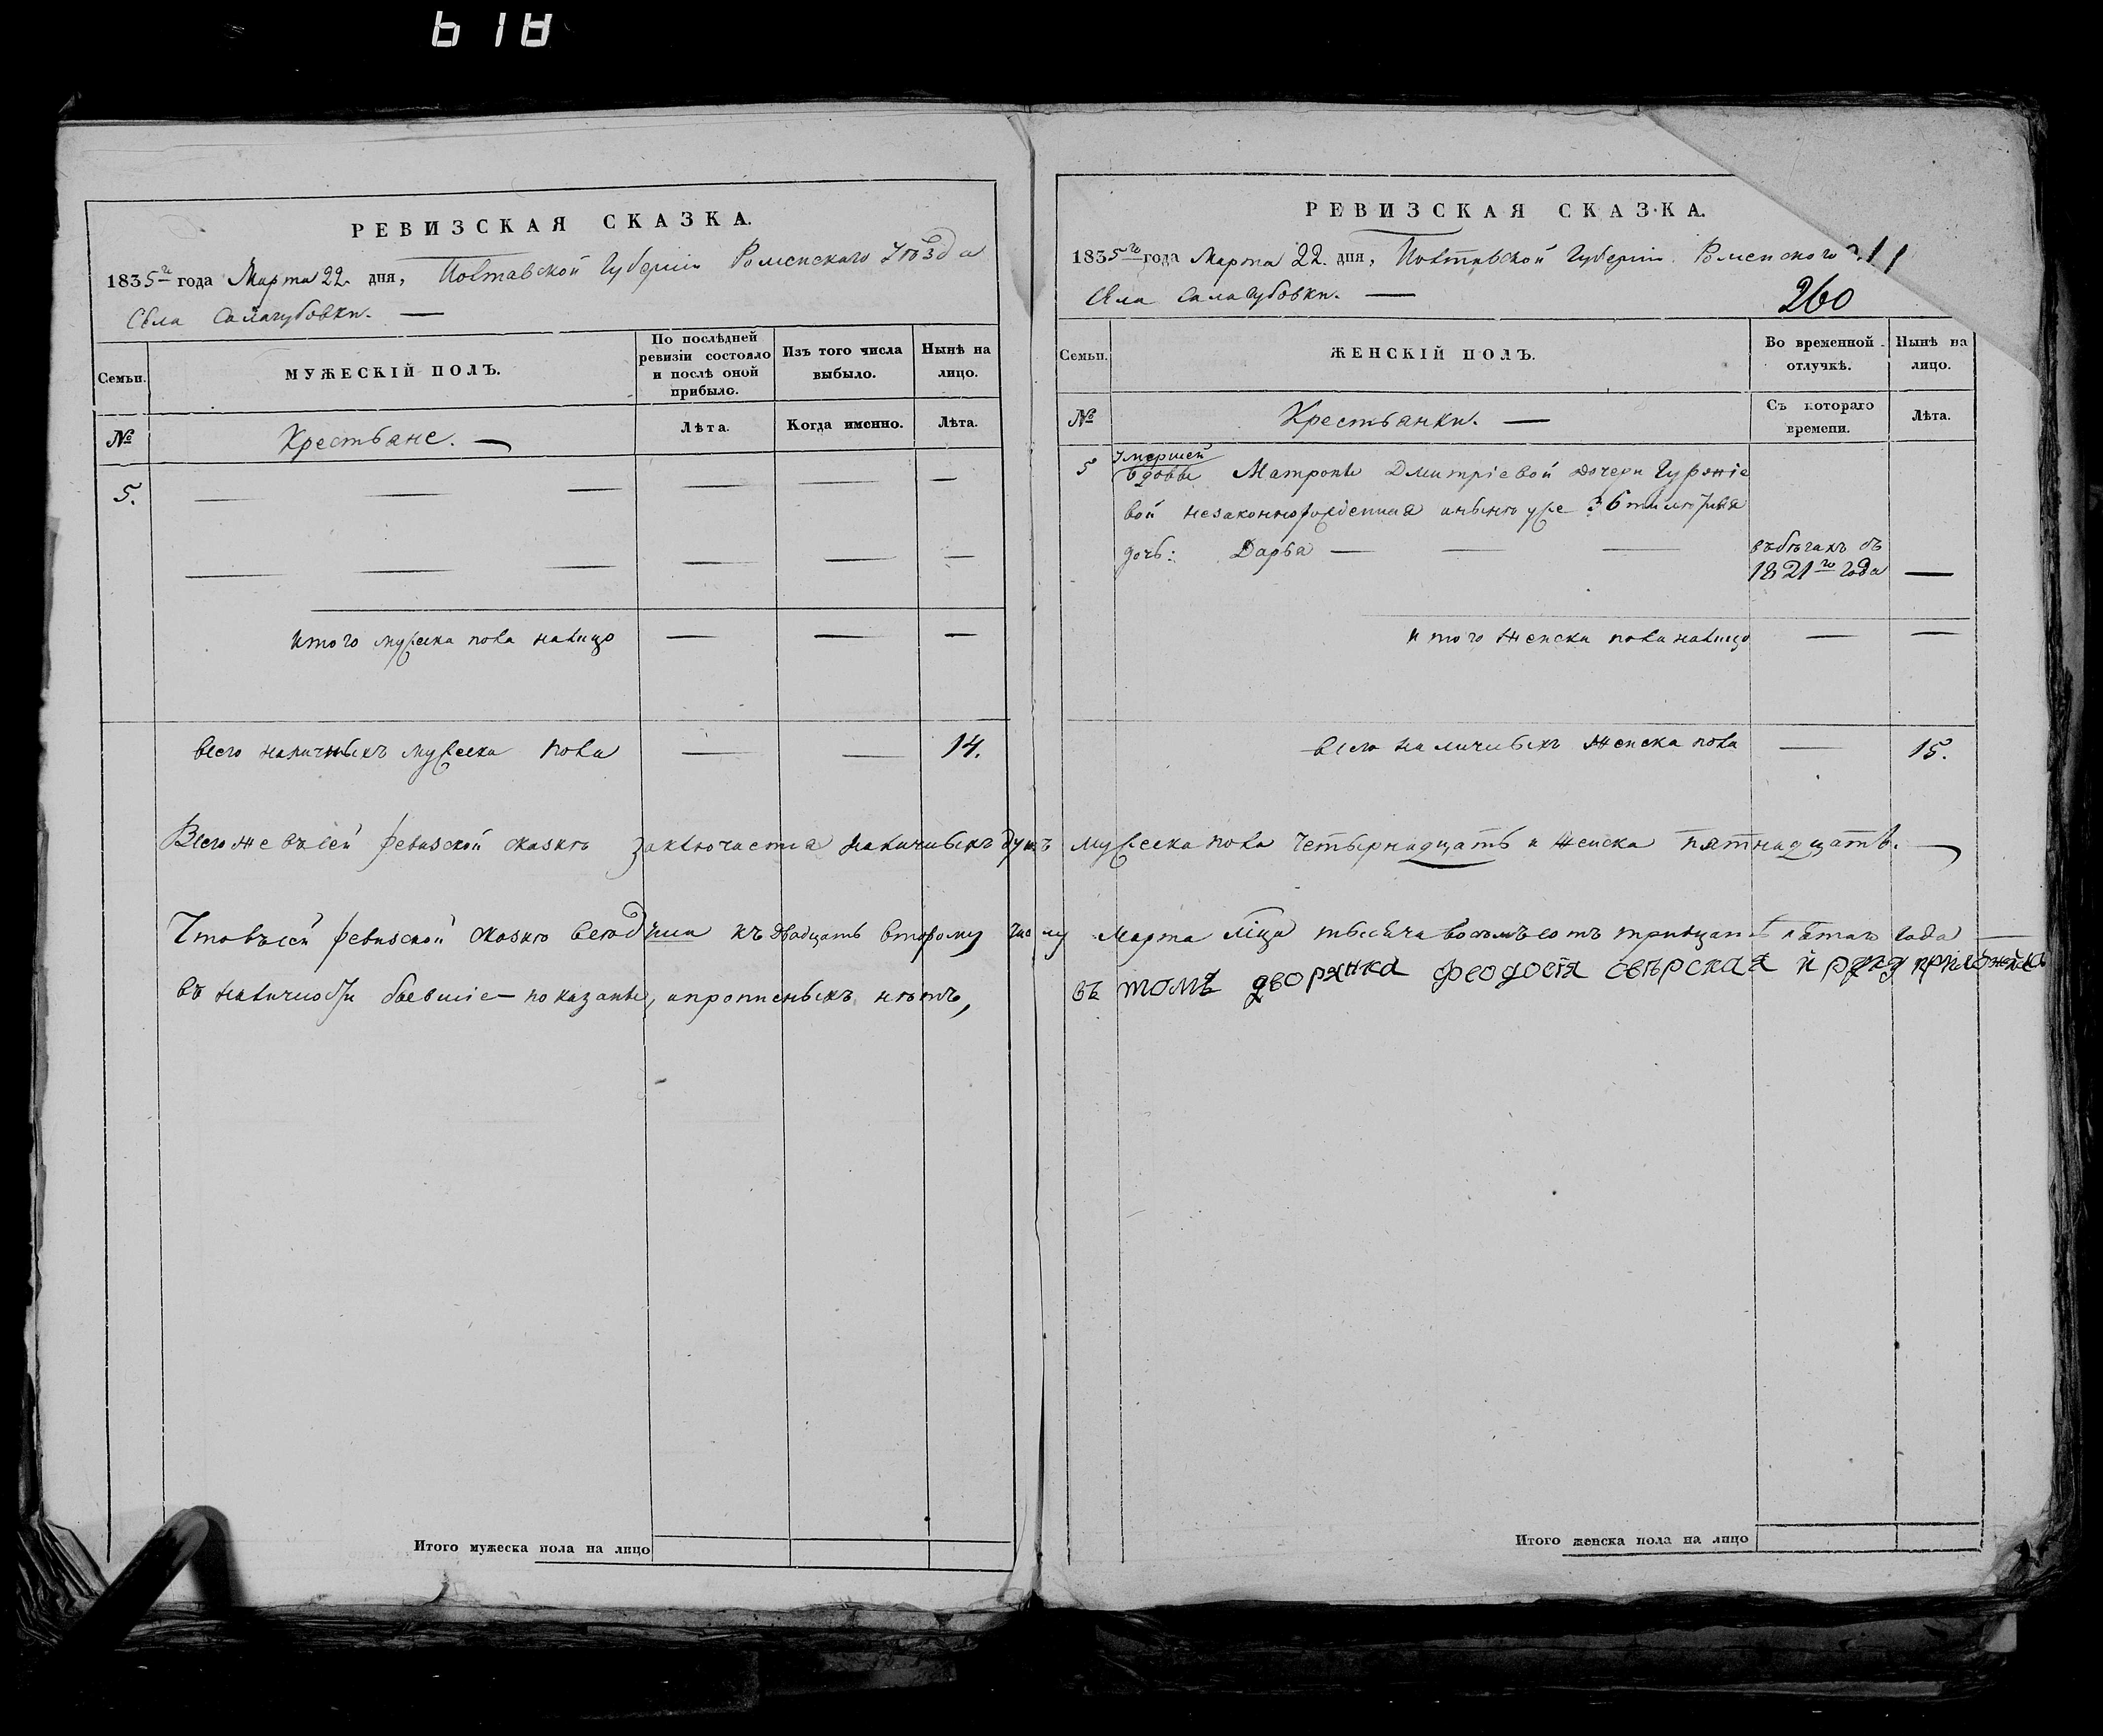 РЕВИЗСКАЯ СКАЗКА.
1835го года Марта 22. дня, Полтавской Губерніи Роменскаго Уѣзда
Села Салагубовки. —
Семьи.
МУЖЕСКІЙ ПОЛЪ.
По послѣдней ревизіи состояло и послѣ оной прибыло.
Изъ того числа выбыло.
Нынѣ на лицо.
№
Крестьяне. —
Лѣта.
Когда именно.
Лѣта.
5. — — — — — —
— — — — — —
Итого мужеска пола налицо — — —
Всего наличныхъ мужеска пола — — 14.
Всего же въ сей ревизской сказкѣ заключается наличныхъ душъ
Что въ сей ревизской сказкѣ всѣ души къ двадцать второму числу
въ наличности бывшіе — показаны, и прописныхъ нѣтъ,
Итого мужеска пола на лицо
РЕВИЗСКАЯ СКАЗКА.
1835го года Марта 22. дня, Полтавской Губерніи Роменского
Села Салагубовки. —
260
Семьи.
ЖЕНСКІЙ ПОЛЪ.
Во временной отлучкѣ.
Нынѣ на лицо.
№
Крестьянки. —
Съ котораго времени.
Лѣта.
умершей
5 вдовы Матроны Дмитріевой дочери
вой незаконнорожденная 36ти лѣтняя
дочь: Дарья — — — въ бѣгахъ съ
1821го года —
Итого женска пола налицо — —
Всего наличныхъ женска пола — 15.
мужеска пола четырнадцать и женска пятнадцать. —
Марта мца тысяча восемъсотъ тридцать пятого года —
въ томъ дворянка феодосія свѣрская и руку приложила
Итого женска пола на лицо